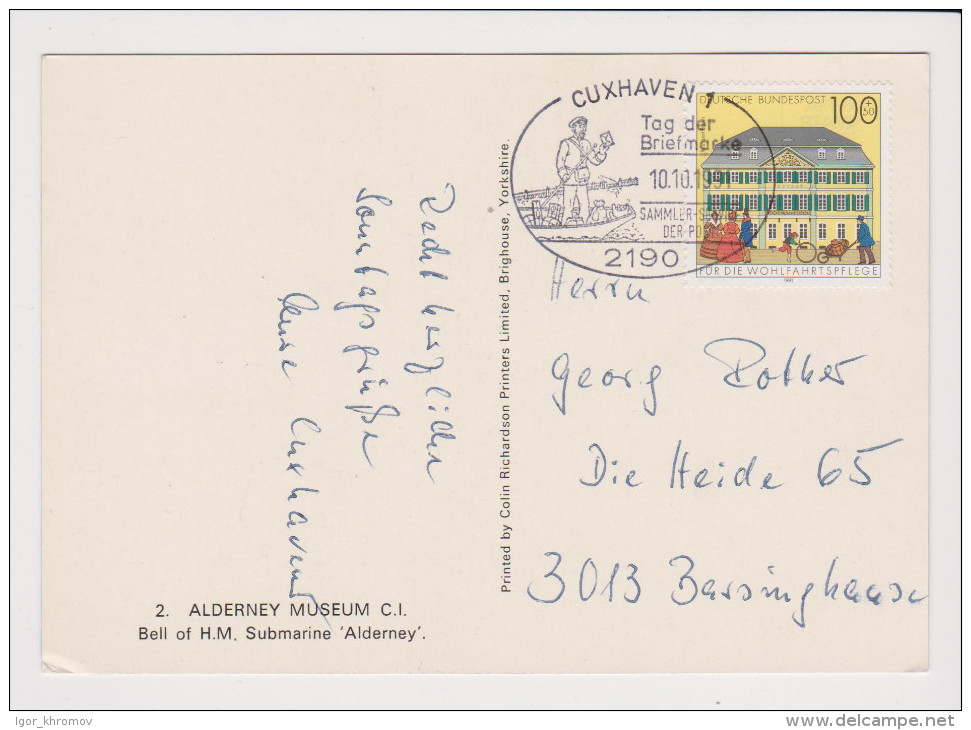 CUXHAVEN 1
Tag der
Briefmarke
10.10.1991
SAMMLER-S
DER-PO
2190
DEUTSCHE BUNDESPOST 100 + 50
FÜR DIE WOHLFAHRTSPFLEGE
1991
Recht herzliche
Sonntagsgrüße
Cuxhaven
Herrn
Georg Rother
Die Heide 65
3013 Barsinghausen
Printed by Colin Richardson Printers Limited, Brighouse, Yorkshire.
2. ALDERNEY MUSEUM C.I.
Bell of H.M. Submarine 'Alderney'.
Igor_khromov
delcampe.net